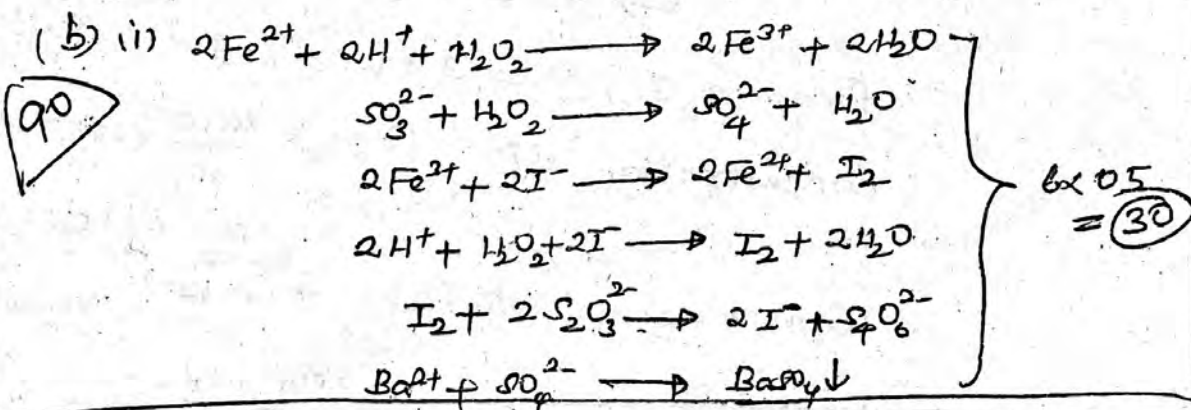 (b) (i) 2Fe²⁺ + 2H⁺ + H₂O₂ → 2Fe³⁺ + 2H₂O
90
SO₃²⁻ + H₂O₂ → SO₄²⁻ + H₂O
2Fe³⁺ + 2I⁻ → 2Fe²⁺ + I₂
6x05
= 30
2H⁺ + H₂O₂ + 2I⁻ → I₂ + 2H₂O
I₂ + 2S₂O₃²⁻ → 2I⁻ + S₄O₆²⁻
Ba²⁺ + SO₄²⁻ → BaSO₄↓